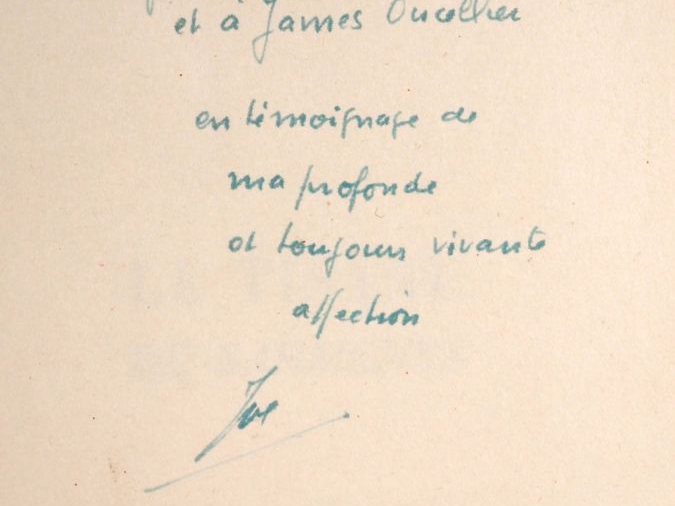 et à James Oucellier
en témoignage de
ma profonde
et toujours vivante
affection